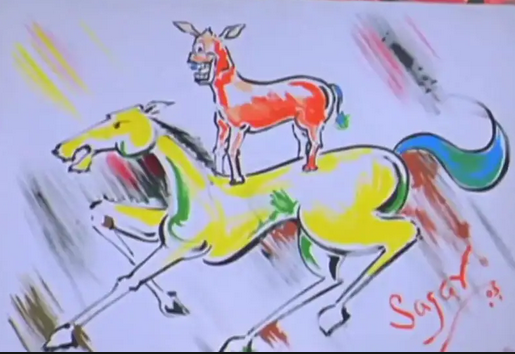 Sagar
05